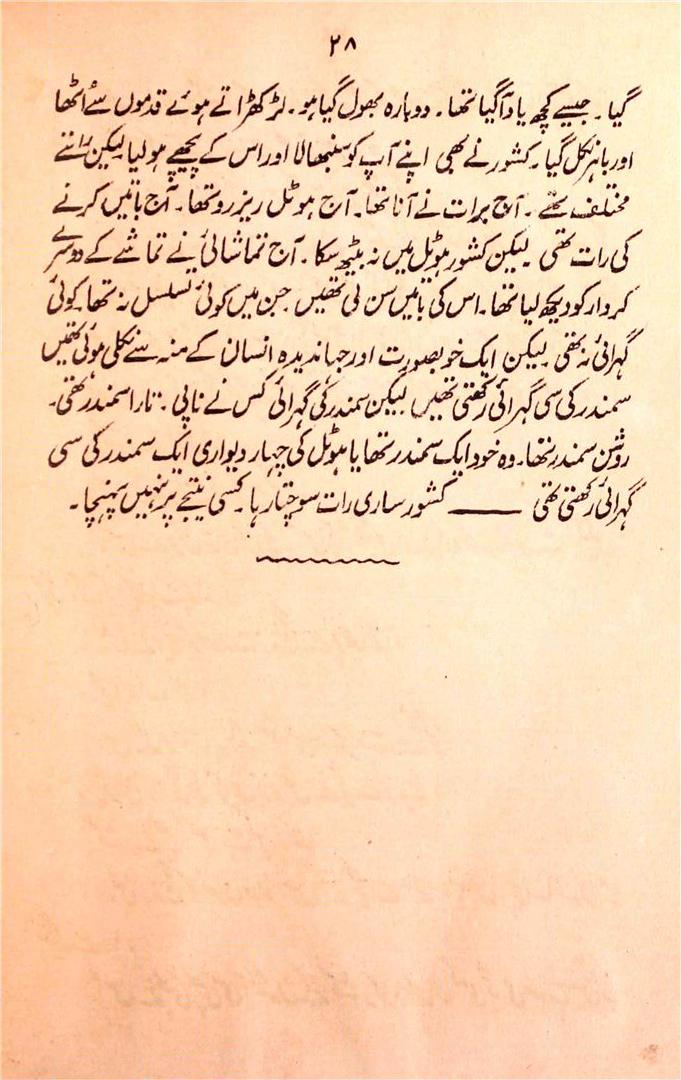 ۲۸
گیا۔ جیسے کچھ یاد آ گیا تھا۔ دوبارہ بھول گیا ہو۔ لڑکھڑاتے ہوئے قدموں سے اٹھا
اور باہر نکل گیا۔ کشور نے بھی اپنے آپ کو سنبھالا اور اس کے پیچھے ہو لیا لیکن راستے
مختلف تھے۔ آج برات نے آنا تھا۔ آج ہوٹل ریزرو تھا۔ آج باتیں کرنے
کی رات تھی لیکن کشور ہوٹل میں نہ بیٹھ سکا۔ آج تماشائی نے تماشے کے دوسرے
کردار کو دیکھ لیا تھا۔ اس کی باتیں سن لی تھیں جن میں کوئی تسلسل نہ تھا کوئی
گہرائی نہ تھی لیکن ایک خوبصورت اور جہاندیدہ انسان کے منہ سے نکلی ہوئی تھیں
سمندر کی سی گہرائی رکھتی تھیں لیکن سمندر کی گہرائی کس نے ناپی۔ تارا سمندر تھی۔
روشن سمندر تھا۔ وہ خود ایک سمندر تھا یا ہوٹل کی چہار دیواری ایک سمندر کی سی
گہرائی رکھتی تھی ــــــ کشور ساری رات سوچتا رہا۔ کسی نتیجے پر نہیں پہنچا۔